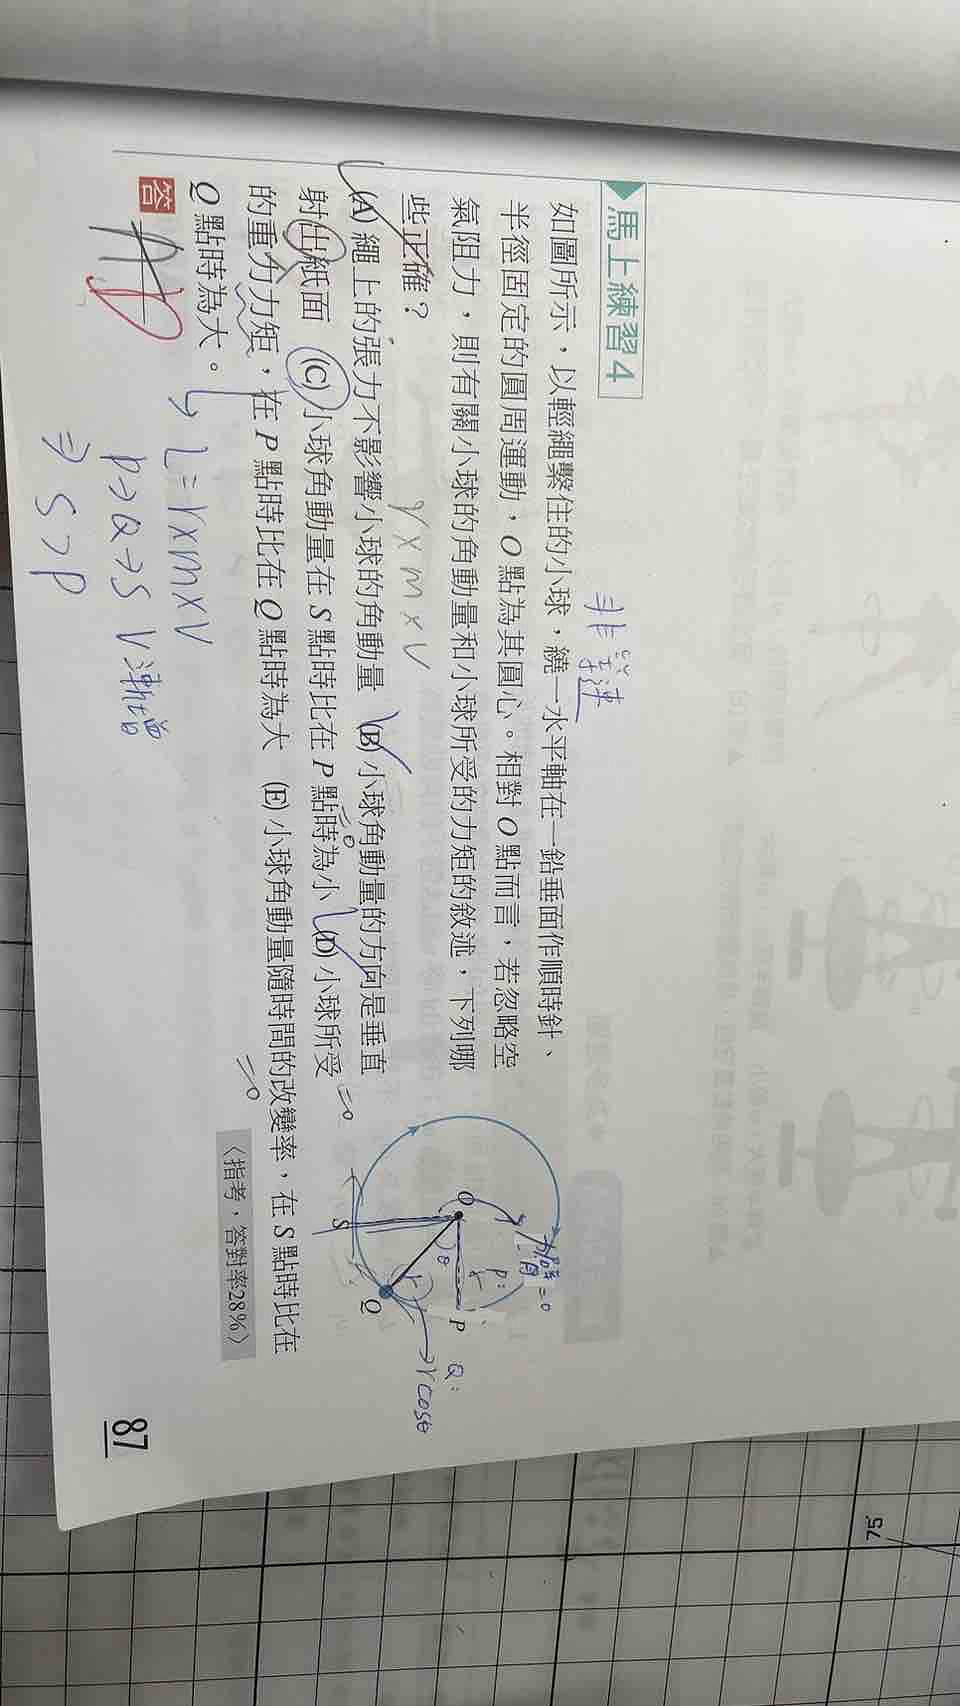 馬上練習4
非等速
如圖所示，以輕繩繫住的小球，繞一水平軸在一鉛垂面作順時針、
半徑固定的圓周運動，O 點為其圓心。相對 O 點而言，若忽略空
氣阻力，則有關小球的角動量和小球所受的力矩的敘述，下列哪
些正確？
r×m×v
(A) 繩上的張力不影響小球的角動量 (B) 小球角動量的方向是垂直
射出紙面 (C) 小球角動量在 S 點時比在 P 點時為小 (D) 小球所受
的重力力矩，在 P 點時比在 Q 點時為大 (E) 小球角動量隨時間的改變率，在 S 點時比在
Q 點時為大。
〈指考，答對率28%〉
=0
=0
答
AD
L=r×m×v
P→Q→S v漸增
⇒ S>P
O
P
Q
S
θ
r
P:
r
Q:
rcosθ
=0
87
75